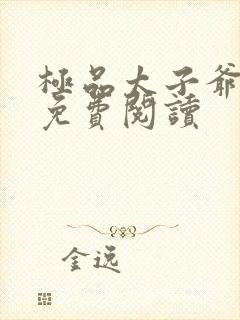 極品太子爺
免費閱讀
金逸